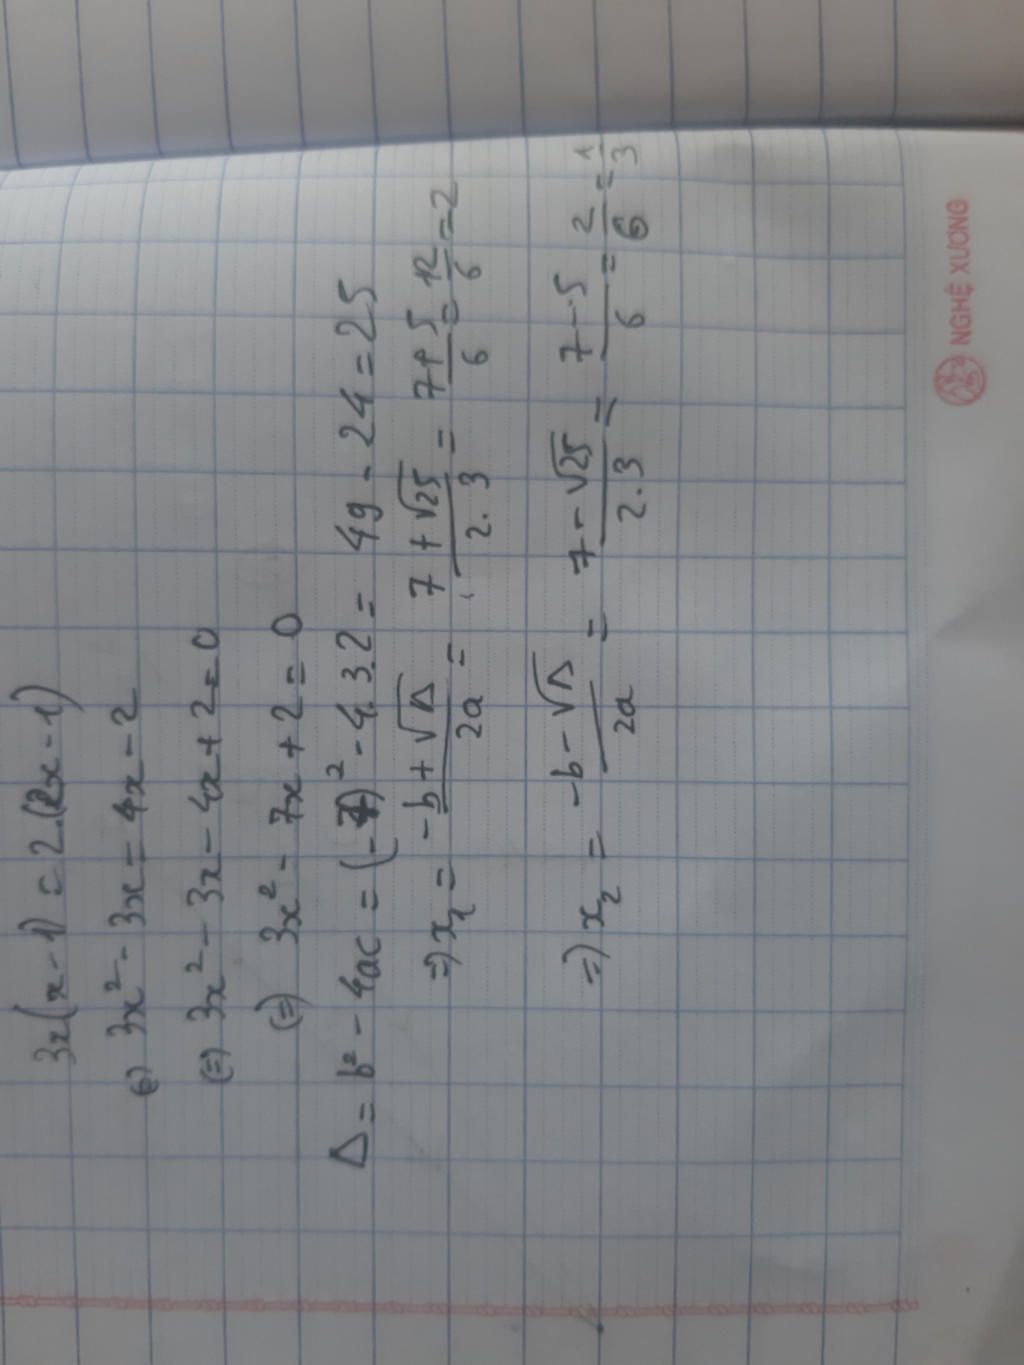 3x(x-1) = 2.(2x-1)
(=) 3x² - 3x = 4x - 2
(=) 3x² - 3x - 4x + 2 = 0
(=) 3x² - 7x + 2 = 0
Δ = b² - 4ac = (-7)² - 4.3.2 = 49 - 24 = 25
=) x₁ = (-b + √Δ)/2a = (7 + √25)/2.3 = (7+5)/6 = 12/6 = 2
=) x₂ = (-b - √Δ)/2a = (7 - √25)/2.3 = (7-5)/6 = 2/6 = 1/3
NGHỆ XƯƠNG